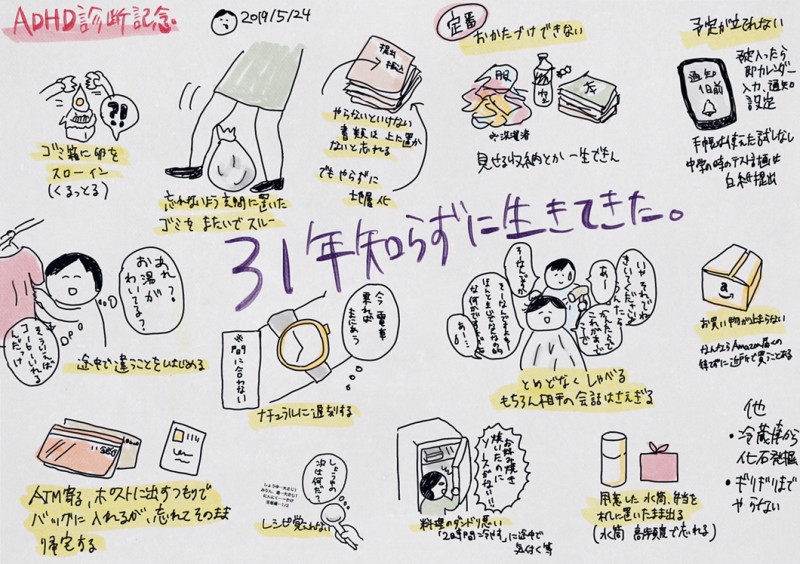 ADHD診断記念。
2019/5/24
!?
ゴミ箱に卵を
スローイン
(くるっとる)
忘れないよう玄関に置いた
ゴミを またいでスルー
提出
振込
やらないといけない
書類は 上に置か
ないと忘れる
でも やらずに
地層化
定番
おかたづけできない
服
空
本
※洗濯済
見せる収納とか一生できん
予定が立てれない
通知
1日前
予定入ったら
即カレンダー
入力、通知
設定
手帳は使えた試しなし
中学の時のテスト計画は
白紙提出
31年知らずに生きてきた。
あれ?
お湯が
わいてる?
そういえば
コーヒーいれる
んだっけ
途中で違うことをはじめる
今 電車
乗れば
まにあう
※PM9
に合わない
ナチュラルに遅刻する
とめどなくしゃべる
もちろん相手の会話はさえぎる
a
お買い物が止まらない
なんならAmazon届くの
待てずに近所で買うことある
ATM寄る、ポストに出すつもりで
バックに入れるが、忘れてそのまま
帰宅する
しょうゆの
次は何だ?
レシピ覚えれない
お好み焼き
焼いたのに
ソースがない!!
料理のダンドリ悪い
「2時間冷やす」に途中で
気付く等
用意した水筒、弁当を
机に置いたまま出る
(水筒 高頻度で忘れる)
他
・冷蔵庫から
化石発掘
・ギリギリまで
やらない